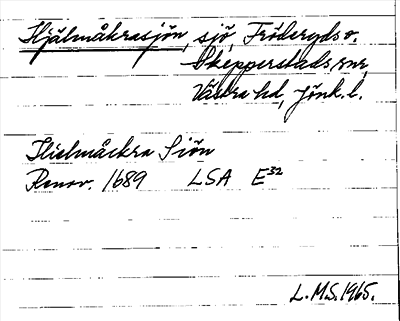 Hjälmåkrasjön, sjö, Fröderyds o.
Skepperstads snr,
Västra hd, Jönk. l.
Hielmåckra Siön
Renov. 1689 LSA E32
L.M.S. 1965.